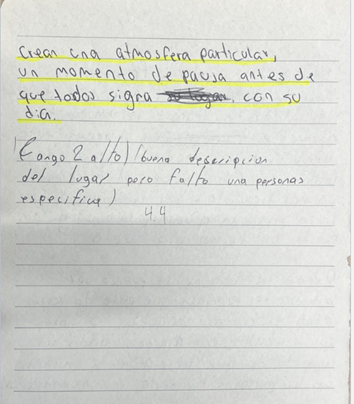 crean una atmosfera particular,
un momento de pausa antes de
que todos signa con su
dia.
(rango 2 alto) (buena descripcion
del lugar pero falto una personas
especifica)
4.4